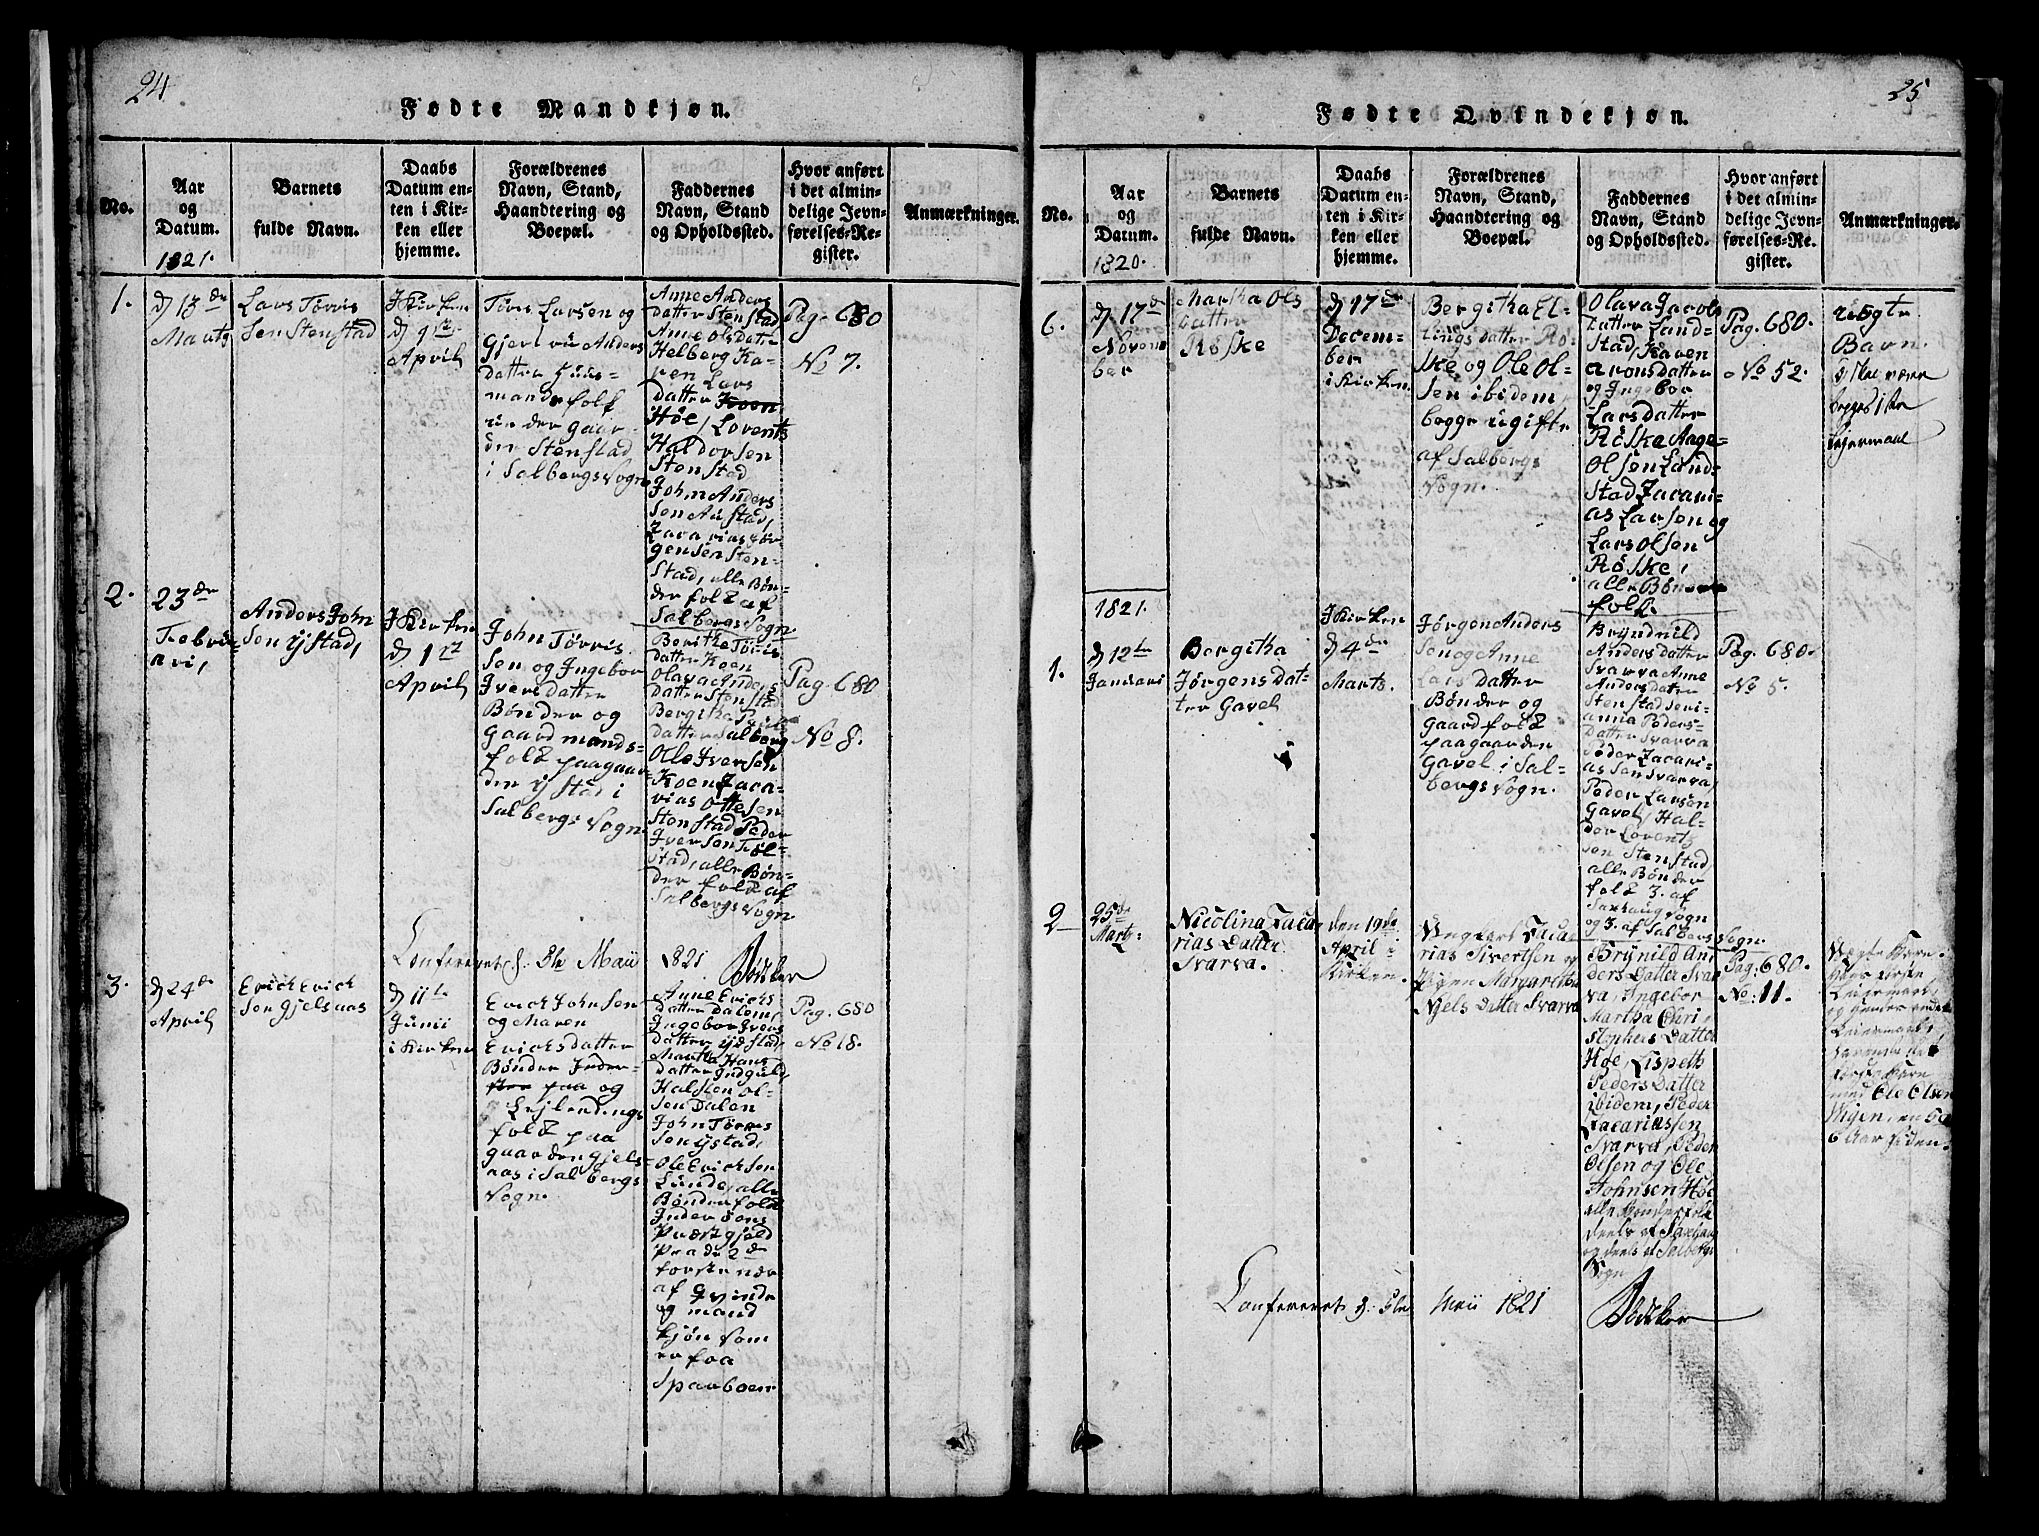 24
Fødte Mandkjøn.
No.
Aar
og
Datum.
1821.
Barnets
fulde Navn.
Daabs
Datum en-
ten i Kir-
ken eller
hjemme.
Forældrenes
Navn, Stand,
Haandtering og
Boepæl.
Faddernes
Navn, Stand
og Opholdssted.
Hvor anført
i det almin-
delige Jevn-
førelses-Re-
gister.
Anmærkninger.
1.
d 13de
Lars Tørris
Sen Stenstad
I Kirken
d 91te
April
Tøris Larsen og
Anders
datter Huus-
mandsfolk
under gaar-
den Stenstad
i Salbergs Sogn
Anne Anders
datter Stenstad
Anne Olsdatr
Helberg Ka-
ren Lars
datter Koen
Høe, Lorents
Haldorsen
Stenstad
John Anders
Sen Austad,
Zacarias Jør-
gensen Sten-
Stad, alle Bøn-
der folk af
Salbergs Sogn
Pag. 680
No 7.
2.
23de
Febru-
ari,
Anders John
Sen ÿstad,
I Kirken
d 1ste
April
John Tørris
Sen og Ingebor
Iversdatter
Bønder og
gaardmands-
folk paa gaar-
den ÿstad i
Salbergs Sogn
Berithe Tørris
datter Koen
Olava Anders
datter Stenstad
Bergitha
datter Salberg
Ole Iversen
Koen Zaca-
rias Ottesen
Stenstad Peder
Iversen Tøl-
stad, alle Bøn-
der folk af
Salbergs Sogn
Pag. 680
No 8.
Confereret d. 8de Maii 1821 Bödtker
3.
d 24de
April
Erich Erich
Sen Gjelsaas
d 11te
Junii
i Kirken
Erich Johnsen
og Maren
Erichsdatter
Bønder Inder-
ster paa og
Lejlendings
folk paa
gaarden Gjels-
aas i Salbergs
Sogn.
Anne Erichs
datter Dalem,
Ingebor Ivers
datter ÿdstad,
Martha Hans
datter Indguld,
Halsten Ol-
sen Dalen
John Tørres
Sen ÿstad,
Ole Erichsen
Lunde, alle
Bønderfolk
Inderøens
Præstgjeld
Paa de 2de
første nær
af Qvinde
og mand
kjøn som
er fra
Sparboen
Pag. 680
No 18.
25
Fødte Qvindekjøn.
No.
Aar
og
Datum.
1820.
Barnets
fulde Navn.
Daabs
Datum en-
ten i Kir-
ken eller
hjemme.
Forældrenes
Navn, Stand,
Haandtering og
Boepæl.
Faddernes
Navn, Stand
og Opholdssted.
Hvor anført
i det almin-
delige Jevn-
førelses-Re-
gister.
Anmærkninger.
6.
d 17de
Novem
ber
Martha Ols
Datter
Røske
d 17de
Decem-
ber
i Kirken
Bergitha El-
lings datter Rø-
ske og Ole Ol-
Sen ibidem
begge ugifte
af Salbergs
Sogn.
Olava Jacobs
datter Land-
stad, Karen
Aronsdatter
og Ingebor
Larsdatter
Røske Aage
Olsen Land-
Stad Zacari-
as Larsen og
Lars Olsen
Røske,
alle Bønder
folk.
Pag. 680.
No 52.
uægte
Barn.
skal være
begges 1ste
Lejermaal
1821.
1.
d 12te
Januari
Bergitha
Jørgensdat-
ter Gavel
I Kirken
d 4de
Marts.
Jørgen Anders
Sen og Anne
Lars datter
Bønder og
gaardfolk
paa gaarden
Gavel i Sal-
bergs Sogn.
Brÿndnild
Andersdatter
Svarva Anne
Andersdatter
Stenstad Seri-
anna Peders-
datter Svarva
Peder Zacari-
as Sen Svarva,
Peder Larsen
Gavel, Hal-
dor Lorents
sen Stenstad
alle Bønder
folk 3. af
Saxhaug Sogn
og 3. af Salbergs Sogn.
Pag. 680.
No 5.
2
25de
Marts
Nicolina Zaca
rias Datter
Svarva.
den 19de
April i
Kirken
Ungkarl Zaca
rias Sivertsen og
Pigen Margaretha
Njels Datter Svarva
Brÿnild An-
ders Datter Svar
va, Ingebor
Martha Chri-
stophers Datter
Høe Lispeth
Peders Datter
ibidem, Peder
Zacariassen
Svarva, Peder
Olsen og Ole
Johnsen Høe
alle Bønderfolk
deels af Saxhaug
og deels af Salbergs
Sogn
Pag: 680.
No: 11.
Uægte Barn.
med Ole Olsen
Wigen, en 5 a
6 Aar siden.
Confereret d. 8de Maii 1821 Bödtker